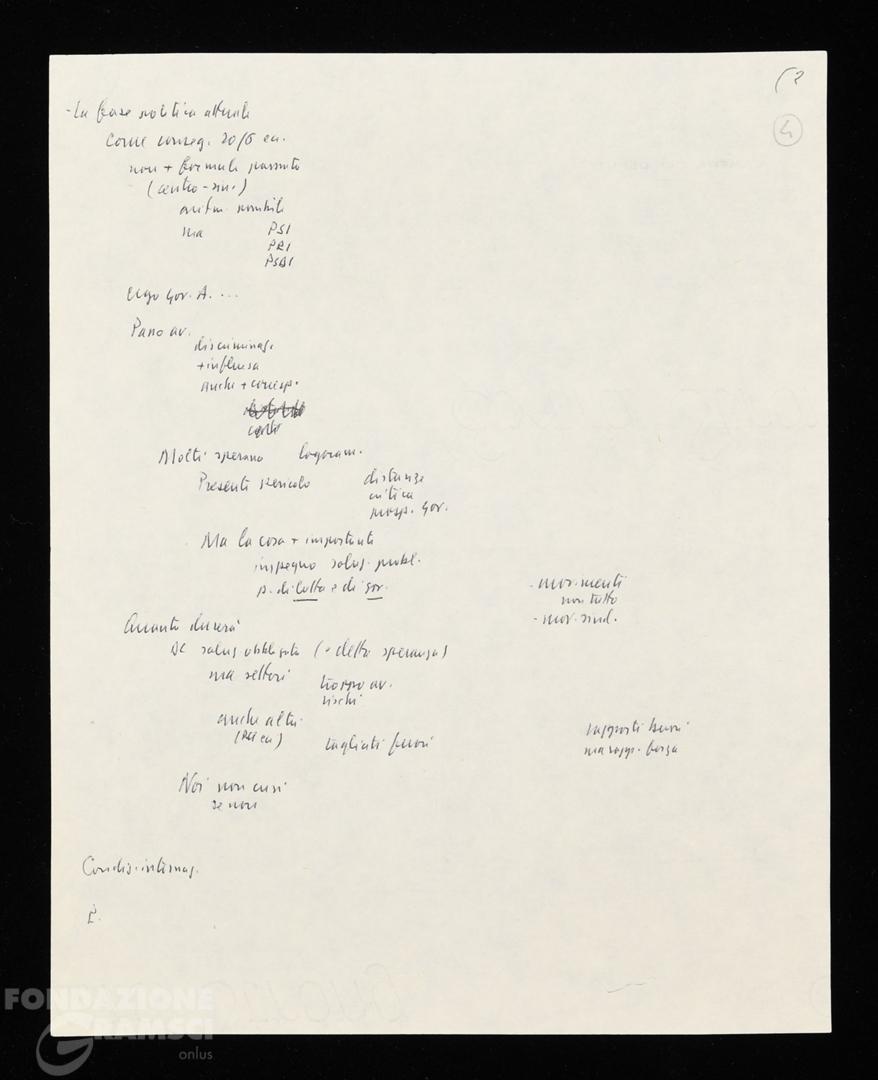 (2
4
- La fase politica attuale
Come conseg. 20/6 ecc.
non + formule passato
(centro-sin.)
aritm. possibili
ma PSI
PRI
PSDI
Ergo Gov. A. ...
Passo av.
discriminaz.
+ influenza
anche + corresp.
Molti sperano logoram.
Presenti pericolo distanze
critica
prosp. Gov.
Ma la cosa + importante
impegno soluz. probl.
p. di lotta e di gov.
- movimenti
non tutto
- mov. sind.
Quanto durerà
DC soluz. obbligata (e detto speranza)
ma settori troppo av.
rischi
anche altri
(PSI ecc) tagliati fuori
rapporti buoni
ma rapp. forza
Noi non crisi
se non
Condiz. internaz.
E.
FONDAZIONE
GRAMSCI
onlus